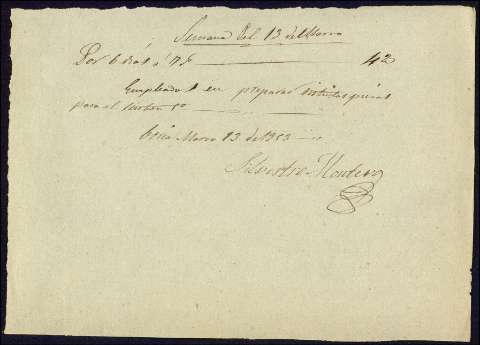 Semana del 13 de Marzo
Por 6 dias a 7 42
Empleados en preparar piezas
para el
Coria Marzo 13 de 1853
Silvestre Montero